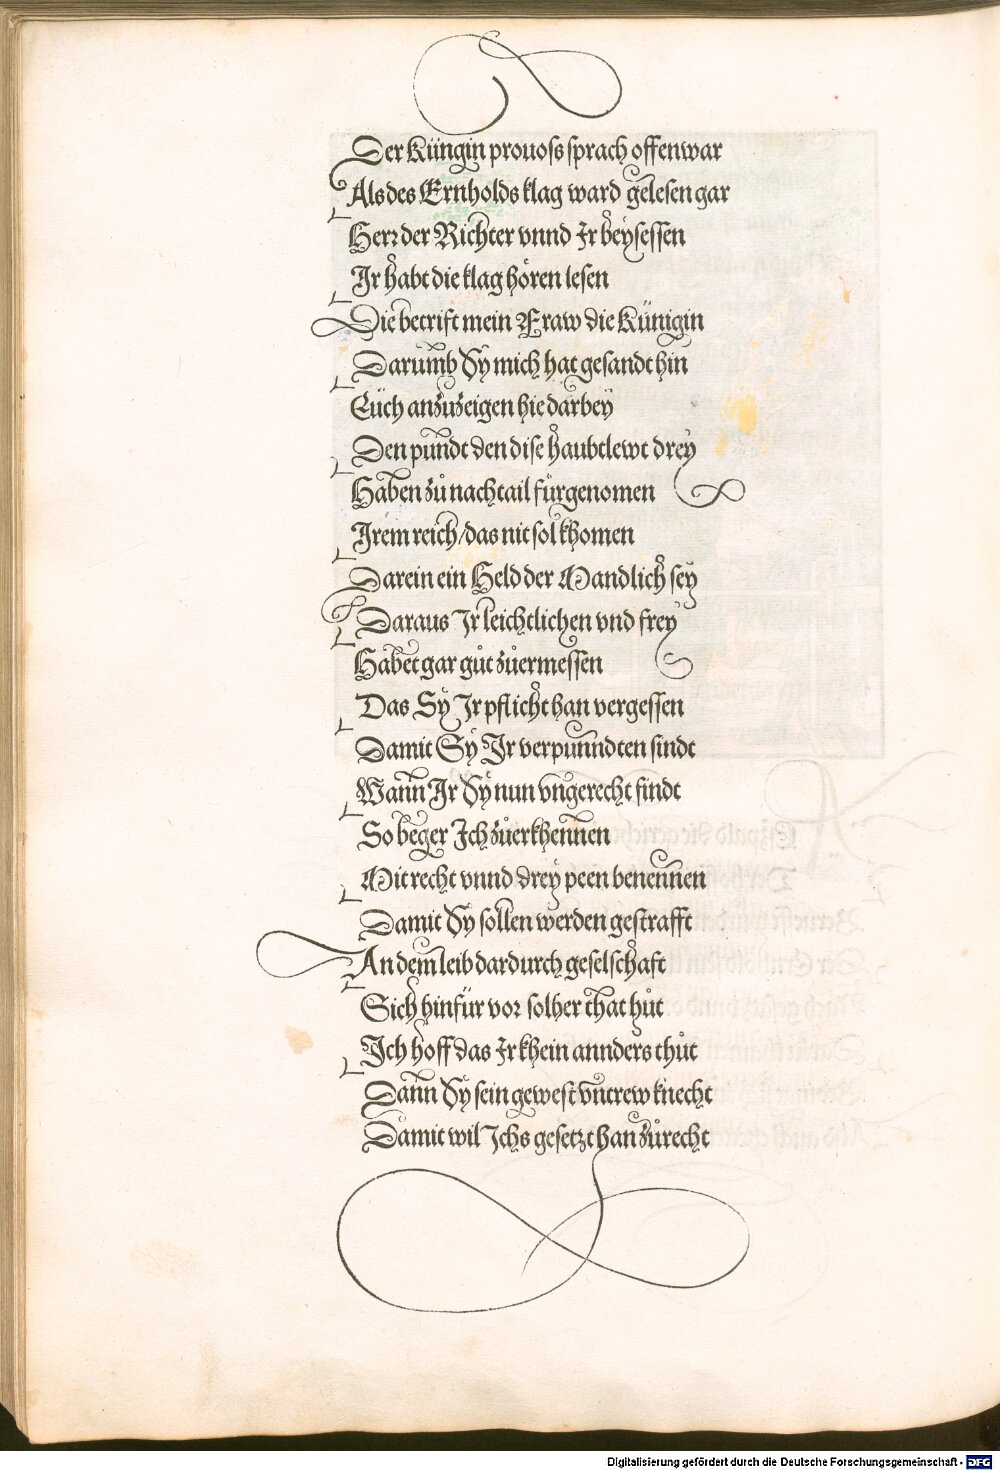 Der Küngin prouoss sprach offenwar
Als des Ernholds klag ward gelesen gar
Herr der Richter vnnd Ir beÿsessen
Ir habt die klag hören lesen
Die betrift mein Fraw die Künigin
Darumb Sÿ mich hat gesandt hin
Eüch anzuzeigen hie darbeÿ
Den pundt den dise haubtlewt dreÿ
Haben zů nachtail fürgenomen
Irem reich / das nit sol khomen
Darein ein Held der Mandlich seÿ
Daraus Ir leichtlichen vnd freÿ
Habet gar gůt zůermessen
Das Sÿ Ir pflicht han vergessen
Damit Sÿ Ir verpunndten sindt
Wann Ir Sÿ nun vngerecht findt
So beger Ich zůerkhennen
Mit recht vnnd dreÿ peen benennen
Damit Sÿ sollen werden gestrafft
An dem leib dardurch geselschaft
Sich hinfür vor solher that hůt
Ich hoff das Ir khein annders thůt
Dann Sÿ sein gewest vntrew knecht
Damit wil Ichs gesetzt han zůrecht
Digitalisierung gefördert durch die Deutsche Forschungsgemeinschaft - DFG